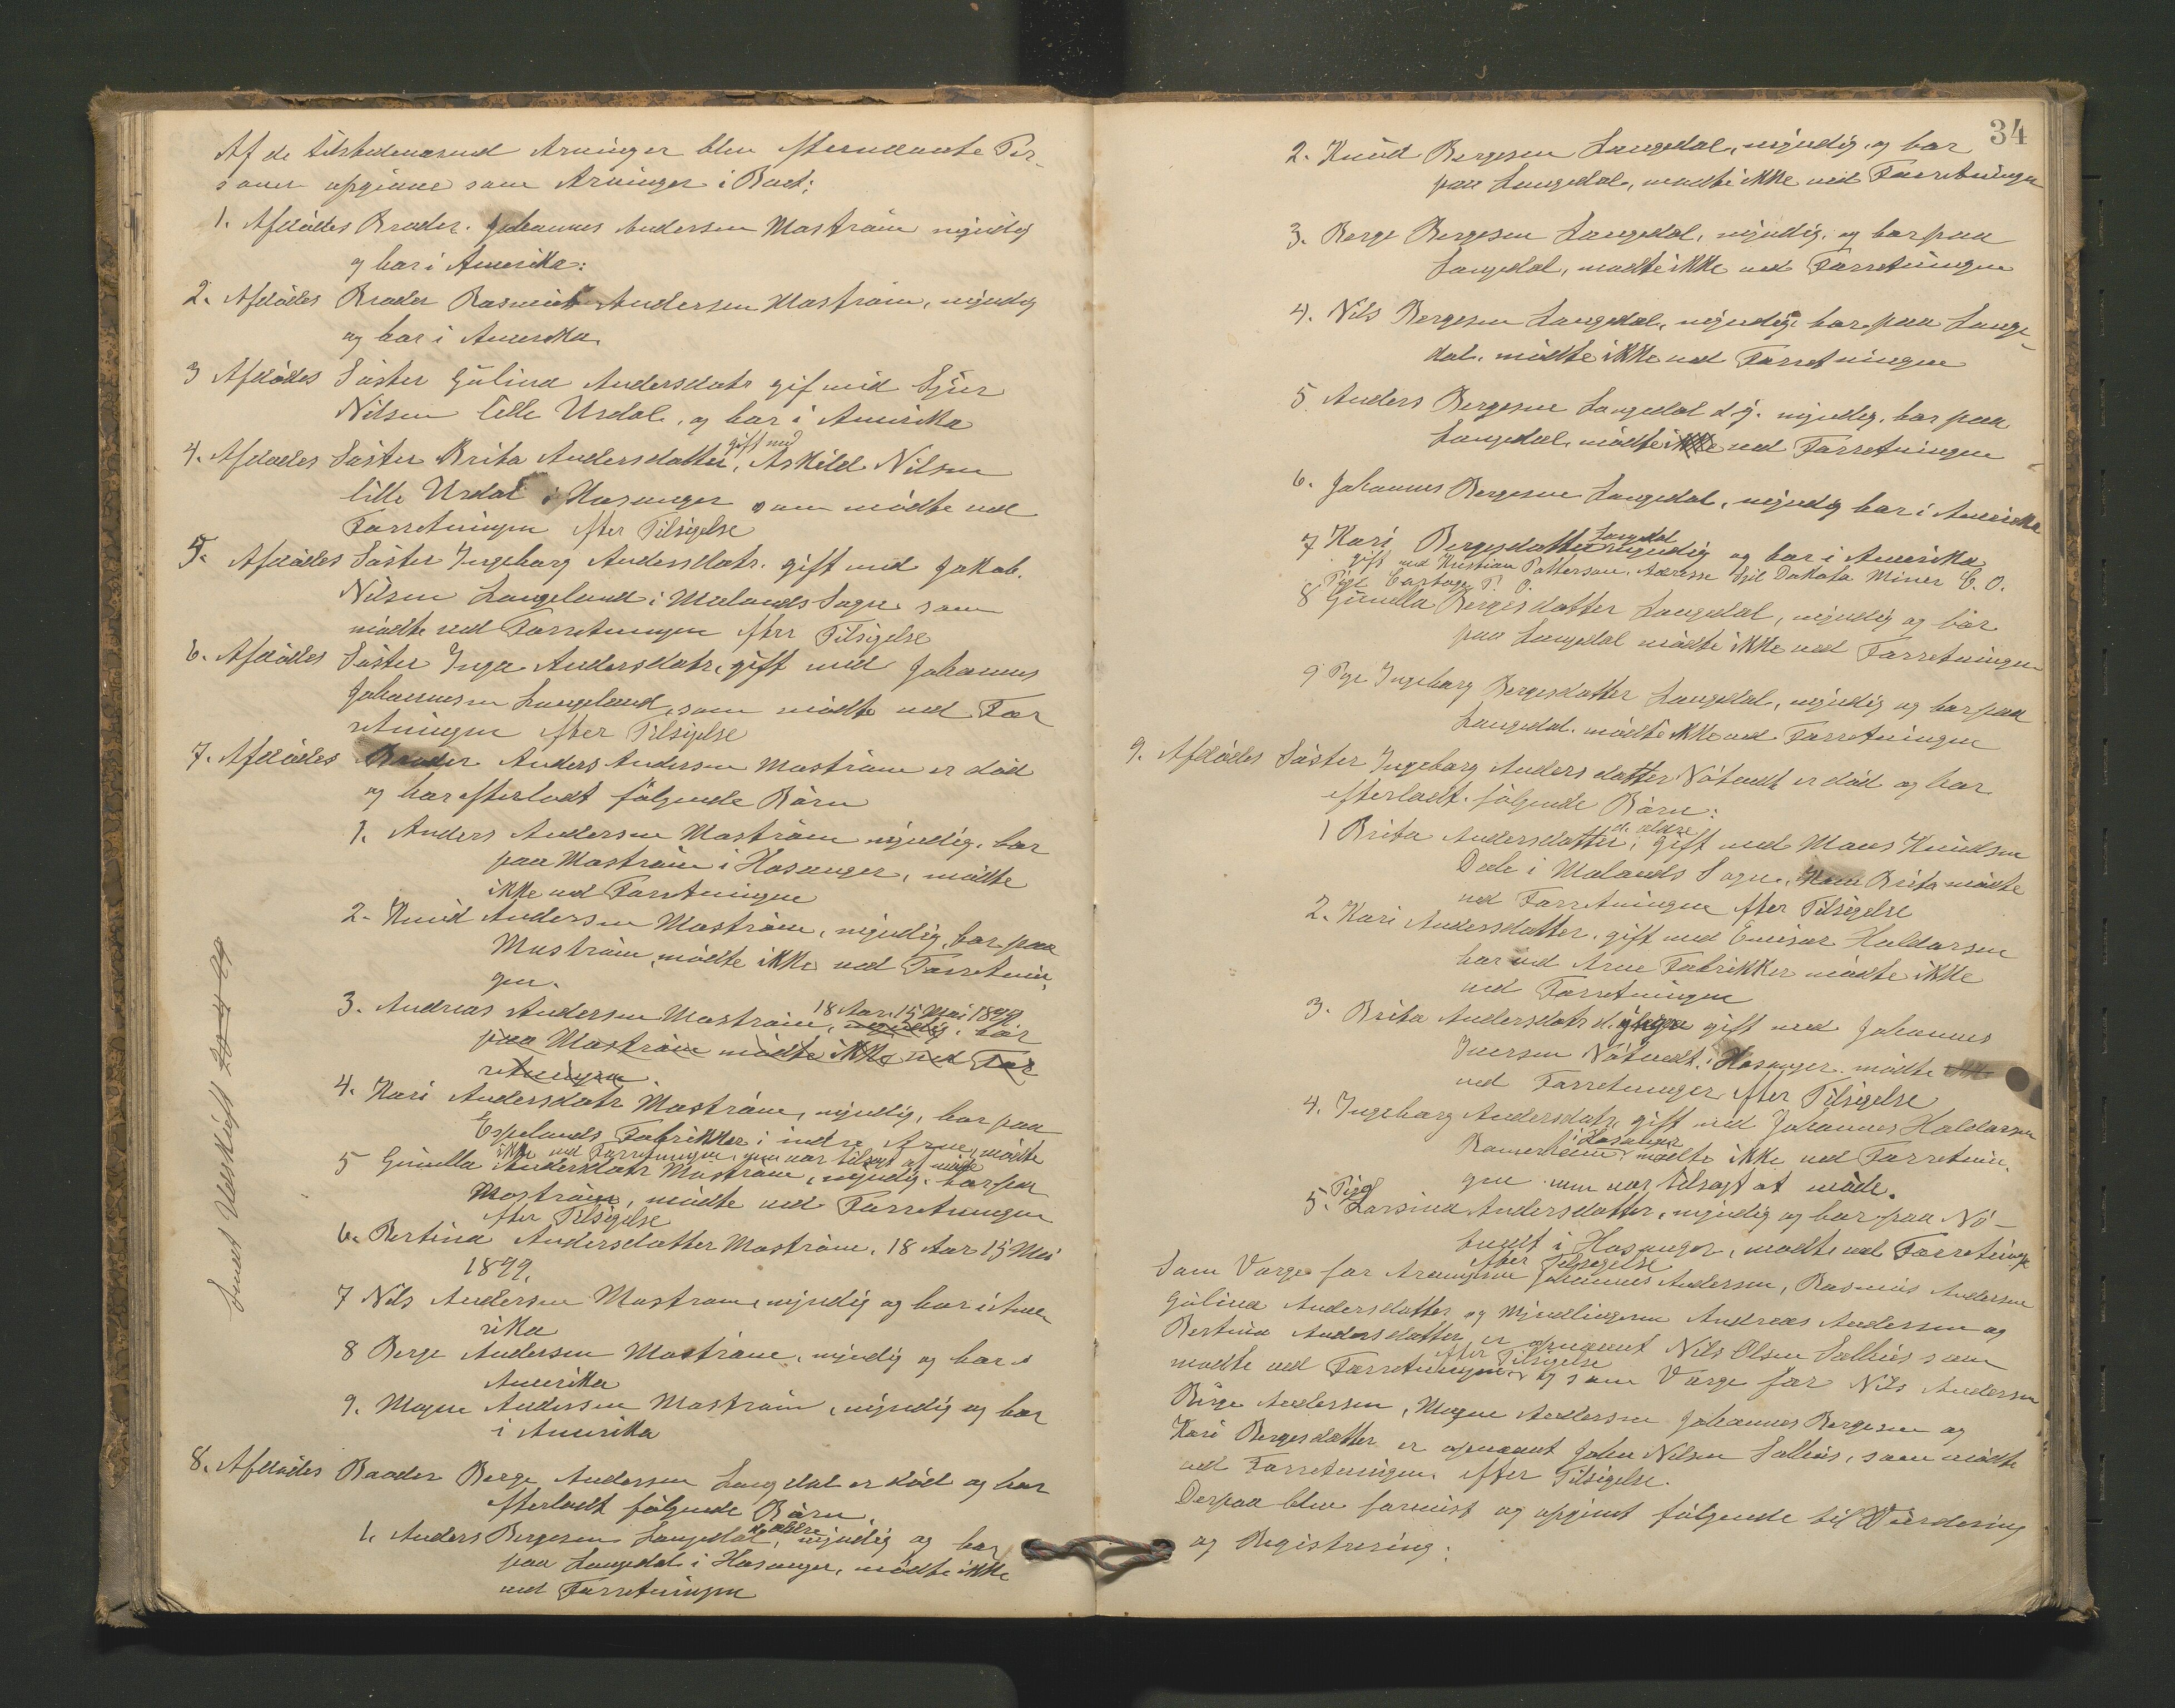 Af de tilstedeværend Arvinger blev efternævnte Per-
soner opgivne som Arvinger i Boet:
1. Afdødes Broder. Johannes Andersen Mostrøm myndig
og bor i Amerika:
2. Afdødes Broder Rasmus Andersen Mostrøm, myndig
og bor i Amerika.
3 Afdødes Søster Gulina Andersdatr gif med Sjur
Nilsen lille Urdal, og bor i Amerika
4. Afdødes Søster Brita Andersdatter, gift med Askild Nilsen
lille Urdal i Hosanger som mødte ved
Forretningen efter Tilsigelse
5. Afdødes Søster Ingeborg Andersdatr. gift med Jakob.
Nilsen Langeland i Mælands Sogn som
mødte ved Forretningen efter Tilsigelse
6. Afdødes Søster Inga Andersdatr, gift med Johannes
Johannesen Langeland, som mødte ved For
retningen efter Tilsigelse
7. Afdødes Broder Anders Andersen Mostrøm er død
og har efterladt følgende Børn
1. Anders Andersen Mostrøm myndig, bor
paa Mostrøm i Hosanger, mødte
ikke ved Forretningen
2. Knud Andersen Mostrøm, myndig, bor paa
Mostrøm, mødte ikke ved Forretnin-
gen.
3. Andreas Andersen Mostrøm, 18 Aar 15 Mai 1899 myndig, bor
paa Mostrøm mødte ikke ved For
retningen
4. Kari Andersdatr Mostrøm, myndig, bor paa
Espelands Fabrikker i indre Arne, mødte
ikke ved Forretningen, men var tilsagt at møde
5 Gunilla Andersdatr Mostrøm, myndig, bor paa
Mostrøm, mødte ved Forretningen
efter Tilsigelse
6. Bertina Andersdatter Mostrøm, 18 Aar 15 Mai
1899.
7 Nils Andersen Mostrøm, myndig og bor i Ame
rika
8 Berge Andersen Mostrøm, myndig og bor i
Amerika
9. Mogne Andersen Mostrøm, myndig og bor
i Amerika
8. Afdødes Broder Berge Andersen Langedal er død og har
efterladt følgende Børn
1. Anders Bergesen Langedal d. ældre, myndig og bor
paa Langedal i Hosanger, mødte ikke
ved Forretningen
Sendt Udskrift 20-4-99
34
2. Knud Bergesen Langedal, myndig, og bor
paa Langedal, mødte ikke ved Forretningen
3. Berge Bergesen Langedal, myndig, og bor paa
Langedal, mødte ikke ved Forretningen
4. Nils Bergesen Langedal, myndig, bor paa Lange-
dal, mødte ikke ved Forretningen
5 Anders Bergesen Langedal d.y. myndig, bor paa
Langedal, mødte ikke ved Forretningen
6. Johannes Bergesen Langedal, myndig bor i Amerika
7 Kari Bergesdatter Langedal myndig og bor i Amerika
gift med Kristian Patterson. Adresse Syd Dakota Miner C. O.
Cartage P. O.
8 Pige Gunilla Bergesdatter Langedal, myndig og bor
paa Langedal mødte ikke ved Forretningen
9 Pige Ingeborg Bergesdatter Langedal, myndig og bor paa
Langedal. mødte ikke ved Forretningen
9. Afdødes Søster Ingeborg Andersdatter Nøtvedt er død og har
efterladt følgende Børn:
1 Brita Andersdatter d. ældre, gift med Mons Knudsen
Dale i Mælands Sogn, Brita mødte
ved Forretningen efter Tilsigelse
2. Kari Andersdatter, gift med Haldorsen
bor ved Arne Fabrikker mødte ikke
ved Forretningen
3. Brita Andersdatr d. yngre gift med Johannes
Iversen Nøtvedt i Hosanger. mødte ikke
ved Forretninger efter Tilsigelse
4. Ingeborg Andersdatr, gift med Johannes Haldorsen
i Hosanger mødte ikke ved Forretnin-
gen men var tilsagt at møde.
5. Pige Larsina Andersdatter, myndig og bor paa Nø-
tvedt i Hosanger, mødte ved Forretninge
efter Tilsigelse
Som Værge for Arvingerne Johannes Andersen, Rasmus Andersen
Gulina Andersdatter og Myndlingerne Andreas Andersen og
Bertina Andersdatter er opnævnt Nils Olsen Sellius som
mødte ved Forretningen efter Tilsigelse og som Værge for Nils Andersen
Børge Andersen, Mogne Andersen Johannes Bergesen og
Kari Bergesdatter er opnævnt John Nilsen Sellius, som mødte
ved Forretningen efter Tilsigelse.
Derpaa blev forevist og opgivet følgende til Vurdering
og Registrering: